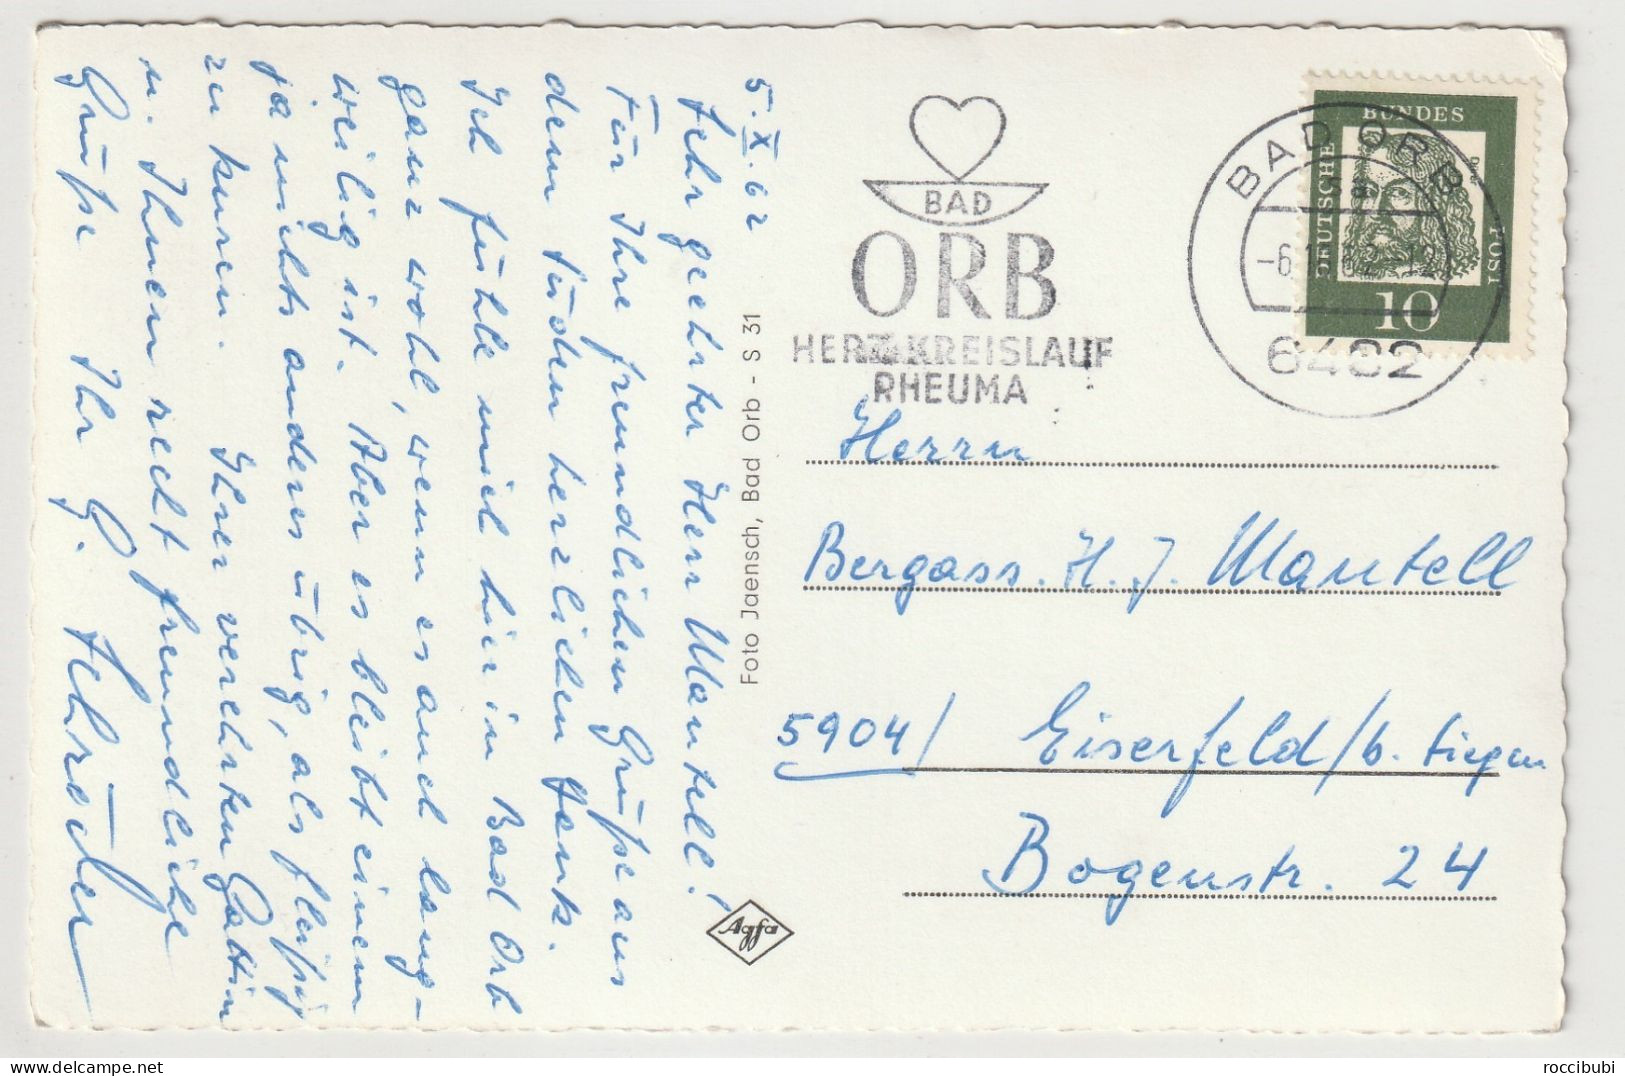 5.X.62
Sehr geehrter Herr Mantell!
Für Ihre freundlichen Grüße aus
dem Süden herzlichen Dank.
Ich fühle mich hier in Bad Orb
ganz wohl, wenn es auch lang-
weilig ist. Aber es bleibt einem
ja nichts anderes übrig, als fleißig
zu kuren. Ihrer verehrten Gattin
u. Ihnen recht freundliche
Grüße Ihr G. Schröder
Foto Jaensch, Bad Orb - S 31
Agfa
BAD
ORB
HERZ-KREISLAUF
RHEUMA
BAD ORB
6482
DEUTSCHE
BUNDES
POST
10
Herrn
Bergass. H. J. Mantell
5904/ Eiserfeld/b. Siegen
Bogenstr. 24
roccibubi